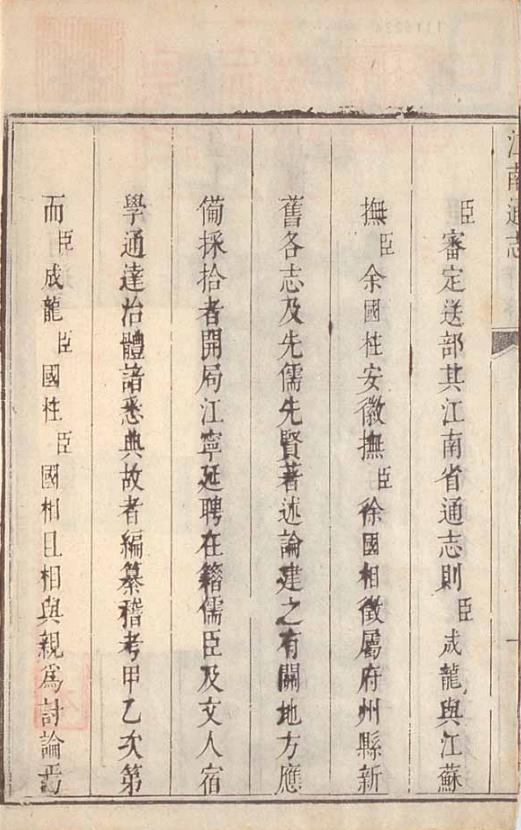 江南通志
臣審定送部其江南省通志則臣成龍與江蘇
撫臣余國柱安徽撫臣徐國相徵屬府州縣新
舊各志及先儒先賢著述論建之有關地方應
備採拾者開局江寧延聘在籍儒臣及文人宿
學通達治體諳悉典故者編纂稽考甲乙次第
而臣成龍臣國柱臣國相日相與親爲討論焉